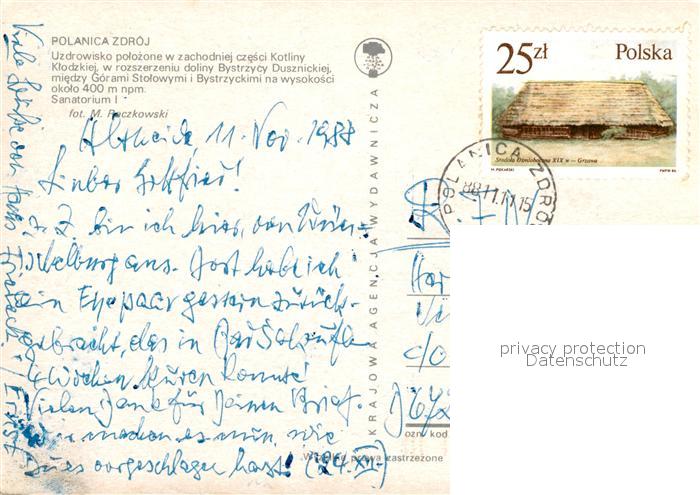 POLANICA ZDRÓJ
Uzdrowisko położone w zachodniej części Kotliny
Kłodzkiej, w rozszerzeniu doliny Bystrzycy Dusznickiej,
między Górami Stołowymi i Bystrzyckimi na wysokości
około 400 m npm.
Sanatorium I
fot. M. Raczkowski
Altheide, 11. Nov. 1988
Lieber Gottfried!
z. Z. bin ich hier, von
aus. Dort habe ich
ein Ehepaar gestern zurück-
gebracht, das in Bad Salzuflen
4 Wochen kuren konnte!
Vielen Dank für Deinen Brief.
machen es nun, wie
Du es vorgeschlagen hast! (24. XII.)
Viele Grüße von
KRAJOWA AGENCJA WYDAWNICZA
25 zł Polska
Stodoła Ośmioboczna XIX w — Grzawa
POLANICA ZDRÓJ
88.11.11.15
R F N
c/o
ozn. kod
zastrzeżone
privacy protection
Datenschutz